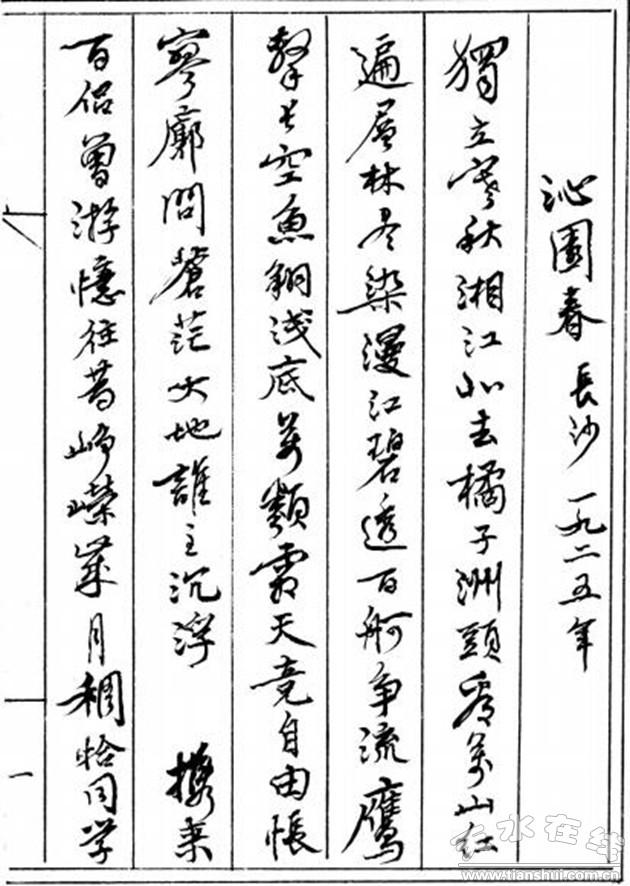 沁園春 長沙 一九二五年
獨立寒秋湘江北去橘子洲頭看萬山紅
遍層林盡染漫江碧透百舸争流鷹
擊長空魚翔浅底萬類霜天竞自由悵
寥廓問蒼茫大地誰主沉浮 携来
百侣曾游憶往昔崢嶸歲月稠恰同学
一
天水在线
www.tianshui.com.cn